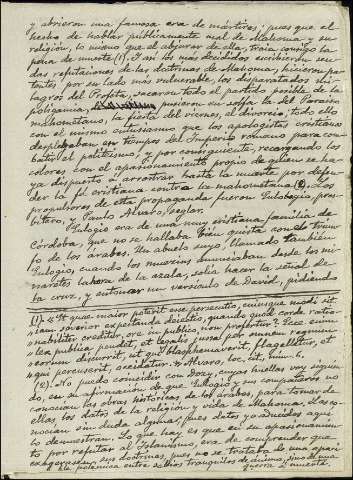 y abrieron una famosa era de mártires; pues que el
hecho de hablar públicamente mal de Mahoma y su
religión, lo mismo que el abjurar de ella, traía consigo la
pena de muerte (1). Y así los más decididos escribieron sen-
das refutaciones de las doctrinas de Mahoma, hicieron pa-
tentes, por su lado más vulnerable, los disparatados mi-
lagros del Profeta, sacaron todo el partido posible de la
poligamia, pusieron en solfa el Paraíso
mahometano, la fiesta del viernes, el divorcio, todo ello
con el mismo entusiasmo que los apologistas cristianos
desplegaban en tiempos del Imperio romano para com-
batir el politeísmo, y por consiguiente, recargando los
colores con el apasionamiento propio de quien se ha-
ya dispuesto a arrostrar hasta la muerte por defen-
der la fe cristiana contra la mahometana (2). Los
propulsores de esta propaganda fueron Eulogio, pres-
bítero, y Paulo Alvaro, seglar.
Eulogio era de una muy cristiana familia de
Córdoba, que no se hallaba bien quista con el triun-
fo de los árabes. Un abuelo suyo, llamado también
Eulogio, cuando los muecines anunciaban desde los mi-
naretes la hora de la azala, solía hacer la señal de
la cruz, y entonar un versículo de David, pidiendo
(1) «Et quae maior poterit esse persecutio, cuiusque modi sit
iam severior expectanda deiectio, quando quod corde ratio-
nabiliter creditur, ore in publico non profertur? Ecce enim
lex publica pendet, et legalis iussa per omnem regnum
eorum discurrit, ut qui blasphemaverit, flagelletur, et
qui percusserit, occidatur.» Alvaro, loc. cit., núm. 6.
(2) No puedo coincidir con Dozy, cuyas huellas voy siguien-
do, en su afirmación de que Eulogio y sus compañeros no
conocían las obras históricas de los árabes, para tomar de
ellas los datos de la religión y vida de Mahoma; las co-
nocían sin duda alguna, pues datos y aducidos aquí
lo demuestran. Lo que hay, es que en su apasionamien-
to por refutar el Islamismo, era de comprender que
exagerasen sus doctrinas, pues no se trataba de una apaci-
ble polémica entre sabios tranquilos de ánimo, sino de una
guerra cruenta.